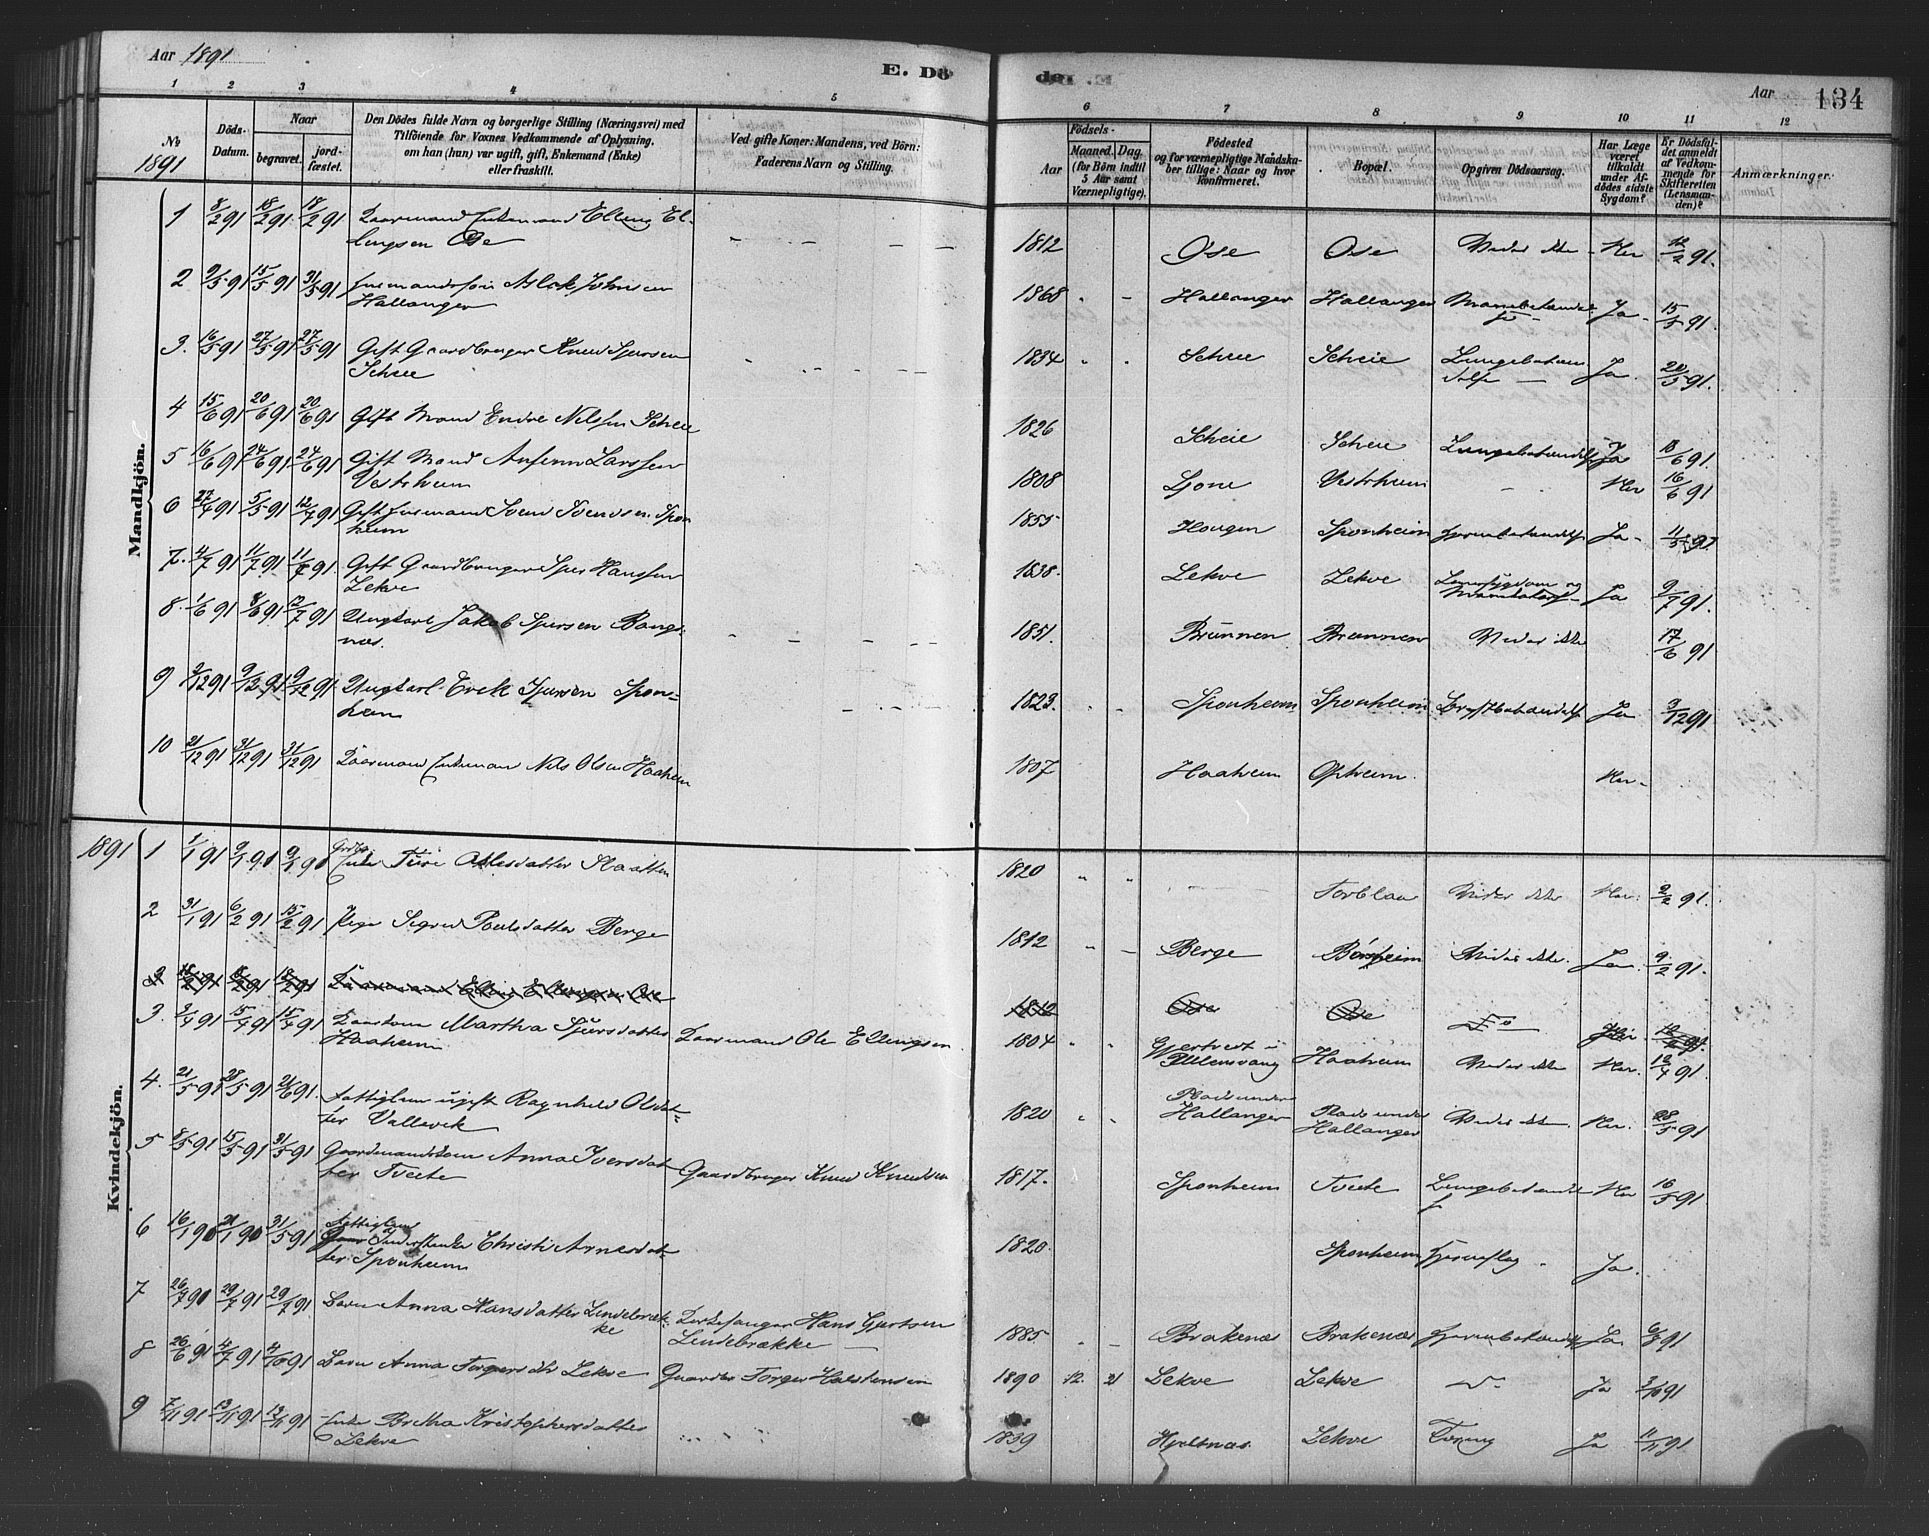 Aar 1891
E. Dö
Aar 134
1 2 3 4 5 6 7 8 9 10 11 12
№ 1891
Döds-Datum.
Naar
begravet. jord-fæstet.
Den Dödes fulde Navn og borgerlige Stilling (Næringsvei) med
Tilföiende for Voxnes Vedkommende af Oplysning,
om han (hun) var ugift, gift, Enkemand (Enke)
eller fraskilt.
Ved gifte Koner: Mandens, ved Börn:
Faderens Navn og Stilling.
Födsels-
Aar Maaned. Dag.
(for Börn indtil
5 Aar samt
Værnepligtige).
Födested
og for værnepligtige Mandska-
ber tillige: Naar og hvor
konfirmeret.
Bopæl.
Opgiven Dödsaarsag.
Har Læge
været
tilkaldt
under Af-
dödes sidste
Sygdom?
Er Dödsfal-
det anmeldt
af Vedkom-
mende for
Skifteretten
(Lensman-
den)?
Anmærkninger.
Mandkjön.
1 8/2 91 18/2 91 18/2 91 Kaarmand Enkemand Elling El-
lingsen Ose 1812 Ose Ose Vides ikke Nei 12/2 91.
2 9/5 91 15/5 91 31/5 91 Hallanger 1868 Hallanger Hallanger Ja 15/5 91.
3. 16/5 91 27/5 91 27/5 91 Gift Gaardbruger Knud Sjursen
Scheie 1834 Scheie Scheie Ja. 20/5 91.
4 15/6 91 20/6 91 20/6 91 Gift Mand Endre Nilsen Scheie 1826 Scheie Scheie Lungebetændelse Ja 18/6 91.
5 16/6 91 24/6 91 24/6 91 Gift Mand Larssen
Vestrheim 1808 Ljone Vestrheim Nei 16/6 91
6 27/4 91 5/5 91 12/7 91 Gift Husmand Svend Svendsen Spon-
heim 1855 Hougen Sponheim Ja 11/5 91.
7. 4/7 91 11/7 91 11/7 91. Gift Gaardbruger Sjur Hanssen
Lekve 1838. Lekve Lekve Ja 9/7 91.
8. 1/6 91 8/6 91 12/7 91 Ungkarl Jakob Sjursen Bongs-
næs. 1851. Brunnen Brunnen Vides ikke 17/6 91
9 2/12 91 9/12 91 9/12 91 Ungkarl Erik Sjursen Spon-
heim 1823. Sponheim Sponheim Brystbetændelse Ja 3/12 91
10 21/12 91 31/12 91 31/12 91. Kaarmand Enkeman Nils Olsen Haaheim 1807 Haaheim Opheim. Nei
Kvindekjön.
1891 1 1/1 91 9/1 90 9/1 90 Enke Turi Slaatten 1820 Torblaa Vides ikke Nei. 2/2 91.
2 31/1 91 6/2 91 15/2 91 Pige Sigrid Poulsdatter Berge 1812 Berge Vides ikke. Ja. 9/2 91.
2 18/2 91 18/2 91 Kaarmand Elling Ellingsen Ose 1812 Ose Ose
3. 2/4 91 15/4 91 15/4 91 Kaarkone Martha Sjursdatter
Haaheim Kaarmand Ole Ellingsen 1804 Gjertvedt i
Ullensvang Haaheim Vides ikke Nei. 12/4 91.
4. 21/5 91 28/5 91 21/6 91. Fattiglem ugift Ragnhild Olsdat-
ter Vallevik 1820 Plads under
Hallanger Plads under
Hallanger Vides ikke Nei. 28/5 91
5 8/5 91 15/5 91 31/5 91 Gaardmandskone Anna Iversdat-
ter Tveite Gaardbruger Knud Knudsen 1817. Sponheim Tveite Nei 16/5 91
6 16/1 90 21/1 90 31/5 91 Fattiglem
Christi Arnesdat-
ter Sponheim 1820. Sponheim Ja.
7 26/7 90 29/7 91 29/7 91 Barn Anna Hansdatter Lindebræk-
ke Hans Gjertsen
Lindebrække 1885 Brakenæs Brakenæs Ja 6/8 91
8 26/6 91 4/7 91 4/10 91 Barn Anna Torgersdtr Lekve Gaardbr Torger Halstensen 1890 12. 21 Lekve Lekve Ja
9 7/11 91 13/11 91 13/11 91 Enke Brita Kristophersdatter
Lekve 1839 Hjeltnæs. Lekve Tæring Ja 11/11 91